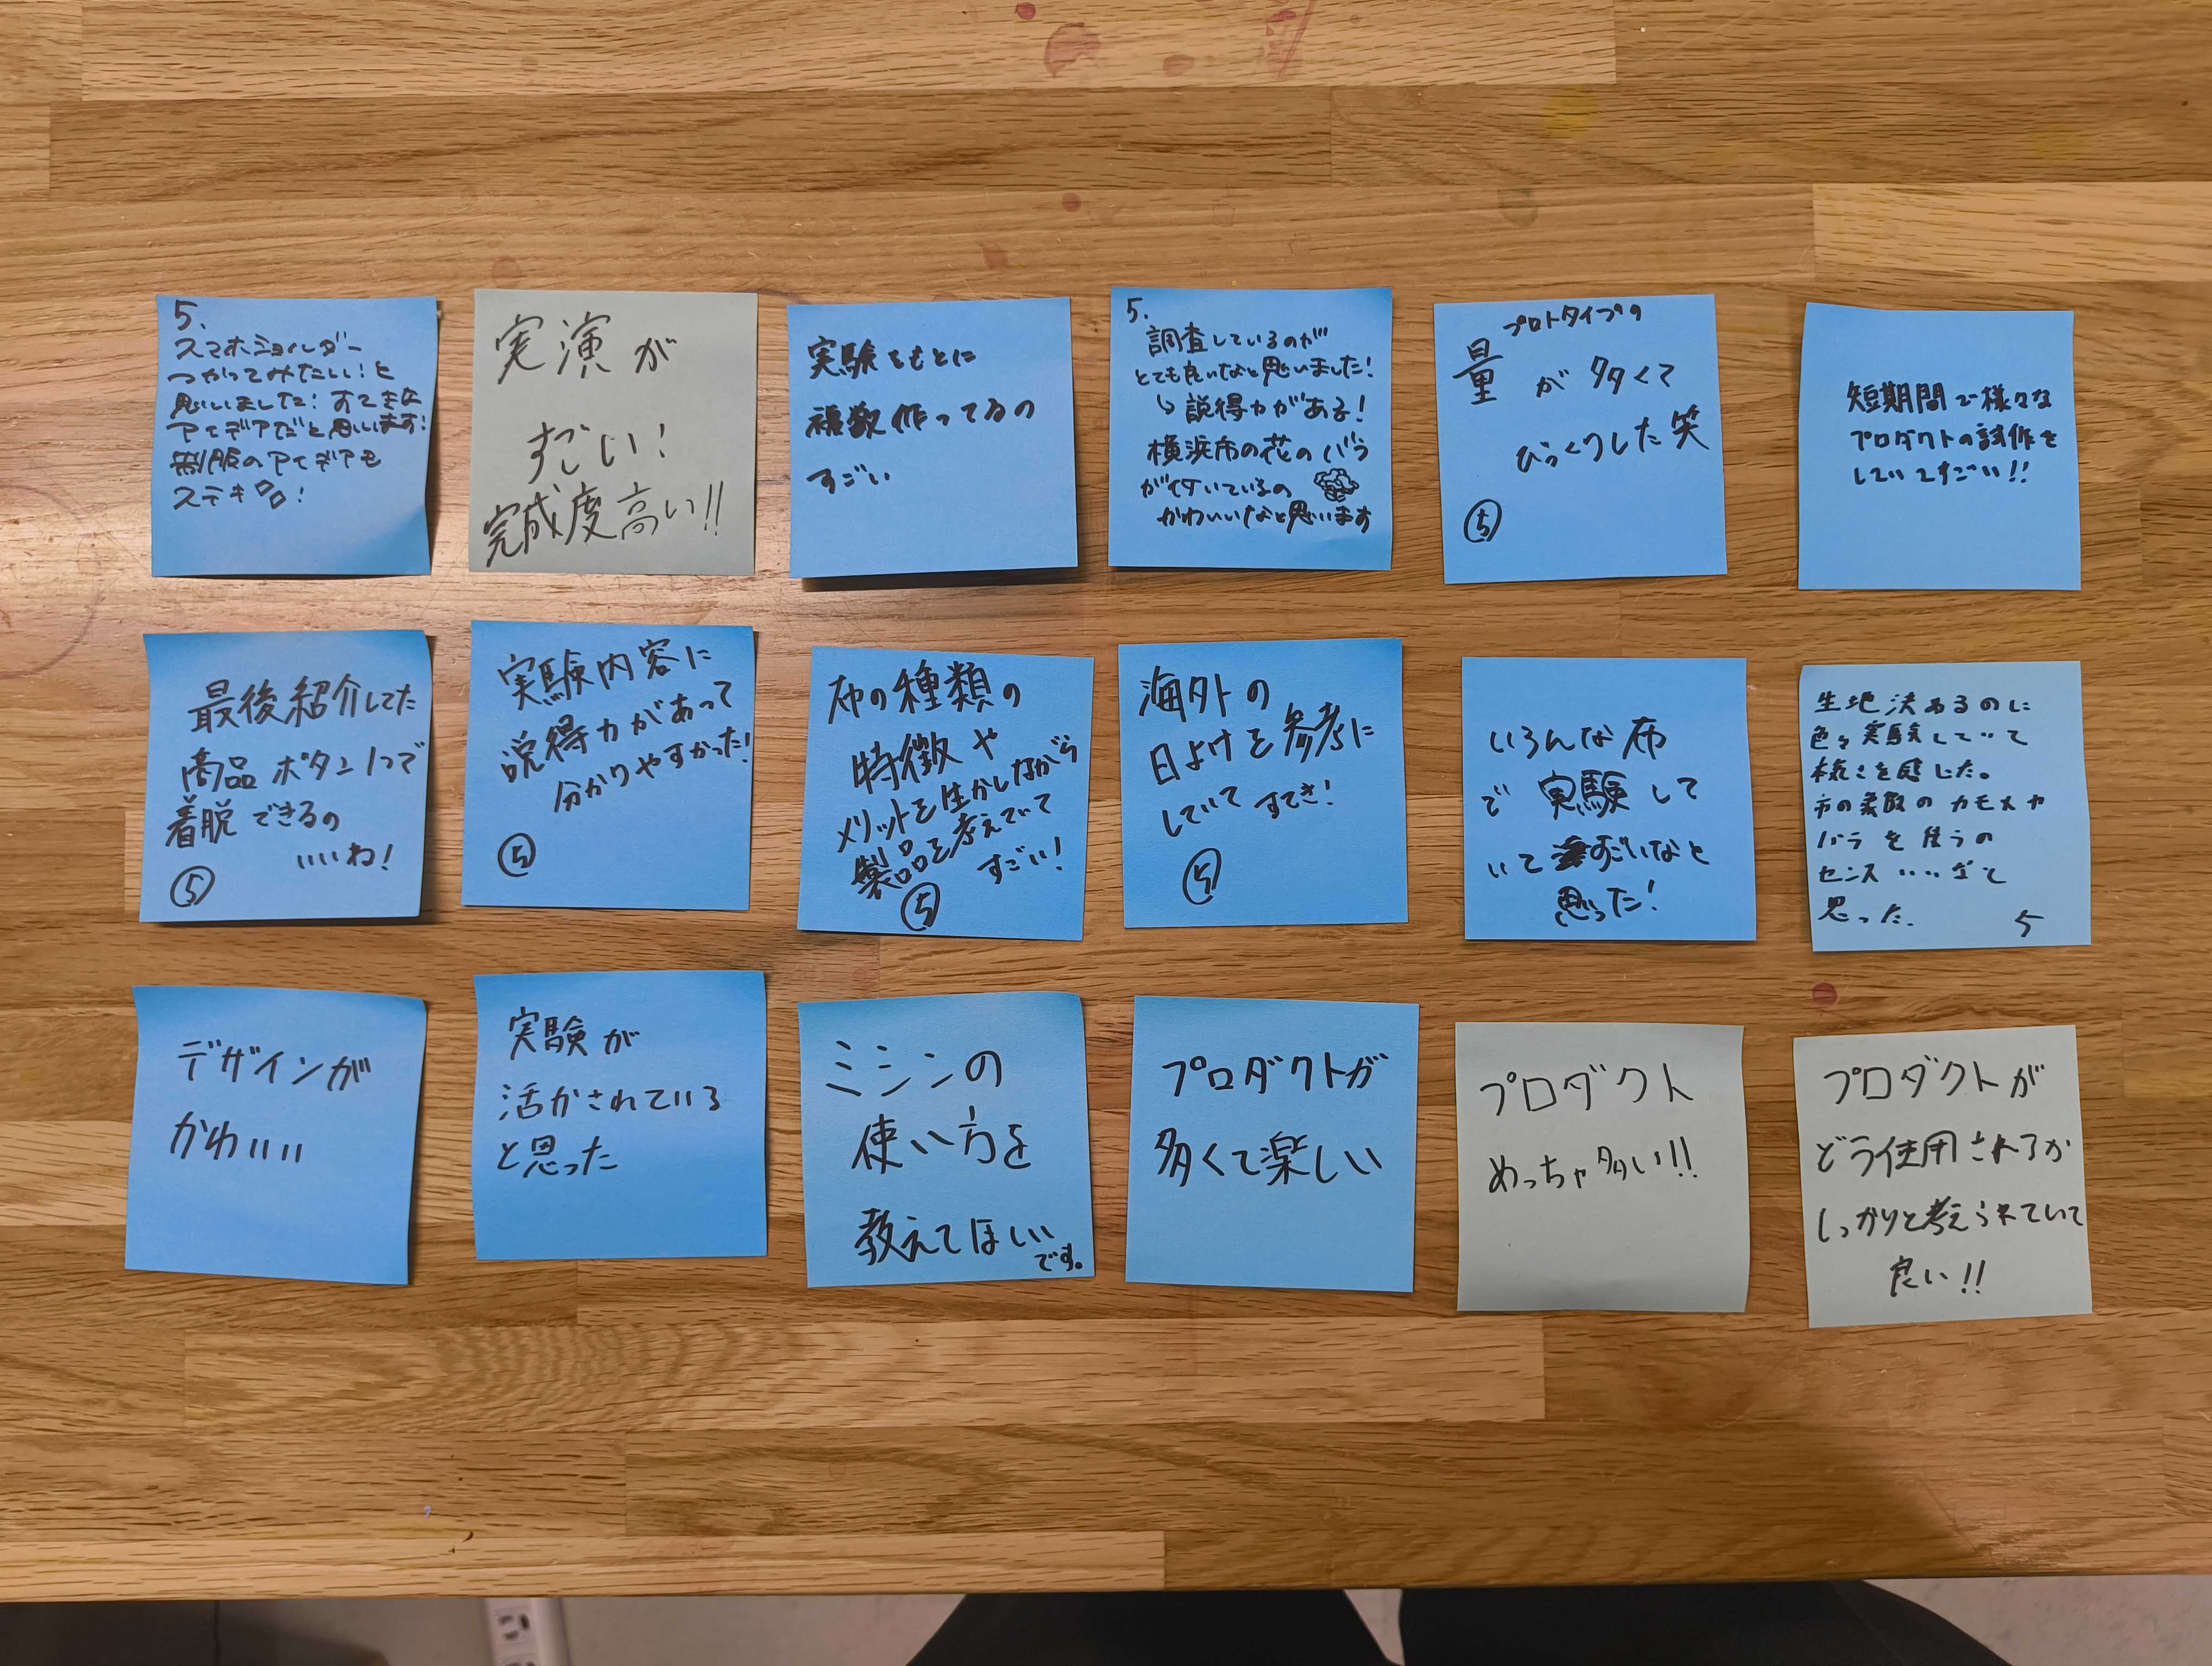 5.
スマホショルダー
つかってみたい!と
思いました!すてきな
アイデアだと思います!
制服のアイデアも
ステキ!
実演が
すごい!
完成度高い!!
実験をもとに
複数作ってるの
すごい
5.
調査しているのが
とても良いなと思いました!
↳説得力がある!
横浜市の花のバラ
が付いているの
かわいいなと思います
プロトタイプの
量が多くて
びっくりした笑
⑤
短期間で様々な
プロダクトの試作を
していてすごい!!
最後紹介してた
商品ボタン1つで
着脱できるの
いいね!
⑤
実験内容に
説得力があって
分かりやすかった!
⑤
布の種類の
特徴や
メリットを生かしながら
製品を考えていて
すごい!
⑤
海外の
日よけを参考に
していてすてき!
⑤
いろんな布
で実験して
いてすごいなと
思った!
生地決めるのに
色々実験していて
本気さを感じた。
市の要散のカモメや
バラを使うの
センスいいなと
思った.
5
デザインが
かわいい
実験が
活かされている
と思った
ミシンの
使い方を
教えてほしい
です。
プロダクトが
多くて楽しい
プロダクト
めっちゃ多い!!
プロダクトが
どう使用されるか
しっかりと考えられていて
良い!!